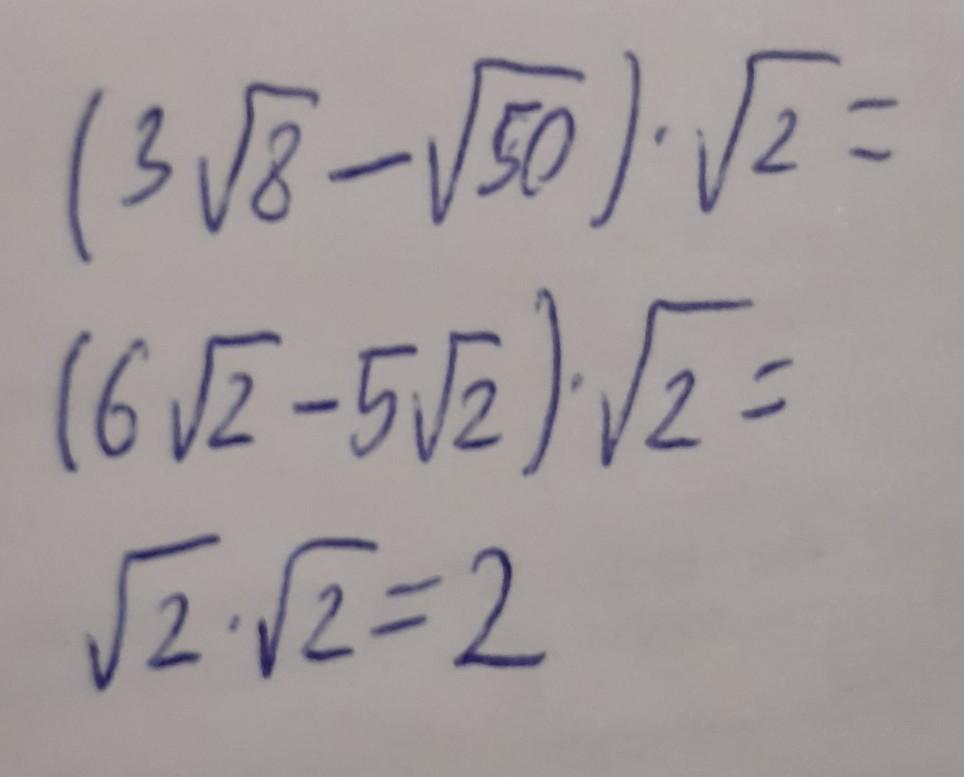 (3√8 − √50) · √2 =
(6√2 − 5√2) · √2 =
√2 · √2 = 2